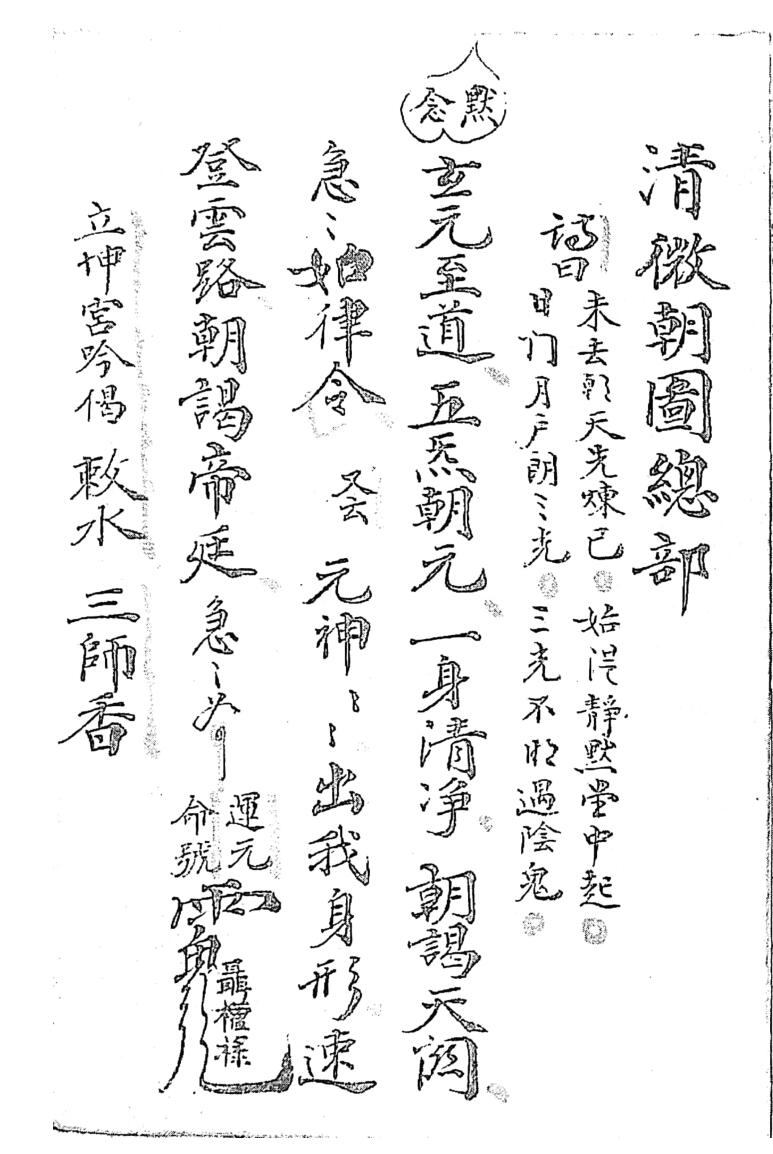 清微朝圖總部
詩曰
未去朝天先煉己 始從靜默堂中起
日门月户朗〻光 三光不明遇陰鬼
默念
玄元至道 五炁朝元 一身清净 朝謁天闕
急〻如律令 又云 元神〻〻出我身形速
登雲路朝謁帝廷 急〻如
運元
命號
立坤宮吟偈 敕水 三師香